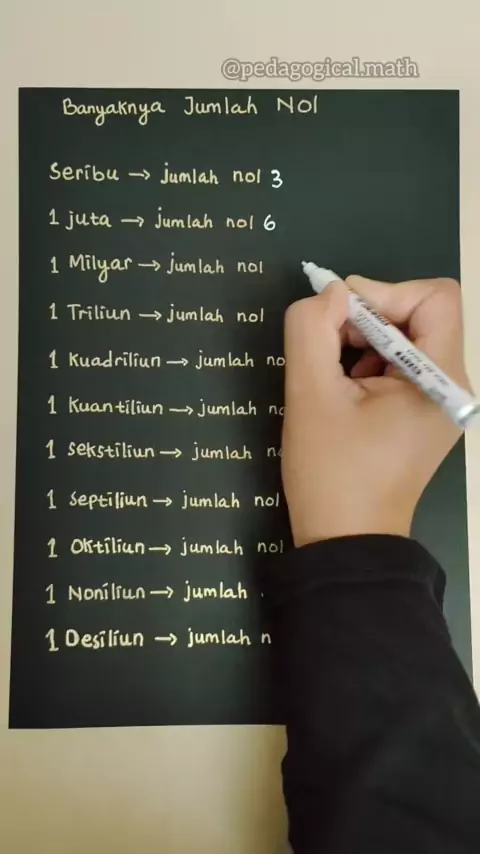 @pedagogical.math
Banyaknya Jumlah Nol
Seribu → jumlah nol 3
1 juta → jumlah nol 6
1 Milyar → jumlah nol
1 Triliun → jumlah nol
1 Kuadriliun → jumlah no
1 Kuantiliun → jumlah no
1 Sekstiliun → jumlah no
1 Septiliun → jumlah nol
1 Oktiliun → jumlah nol
1 Noniliun → jumlah
1 Desiliun → jumlah n